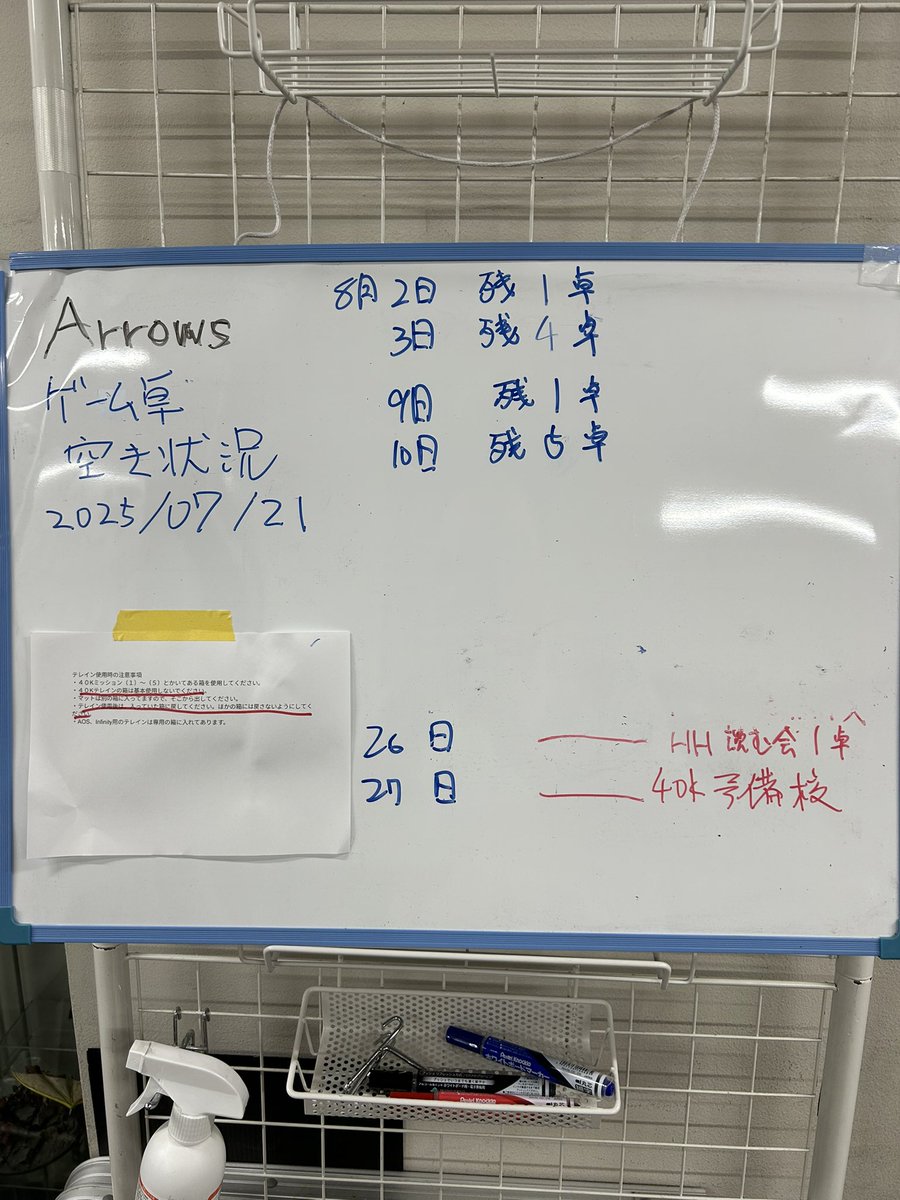 Arrows
ゲーム卓
空き状況
2025/07/21
8月2日 残1卓
3日 残4卓
9日 残1卓
10日 残5卓
テレイン使用時の注意事項
・40Kミッション(1)~(5)とかいてある箱を使用してください。
・40Kテレインの箱は基本使用しないでください。
・マットは別の箱に入ってますので、そこから出してください。
・テレイン使用後は、入っていた箱に戻してください。ほかの箱には戻さないようにしてく
ださい。
・AOS、Infinity用のテレインは専用の箱に入れてあります。
26日 HH読む会1卓
27日 40k予備校
Pentel Knockle
ホワイトボードマーカー
Pentel Knockle